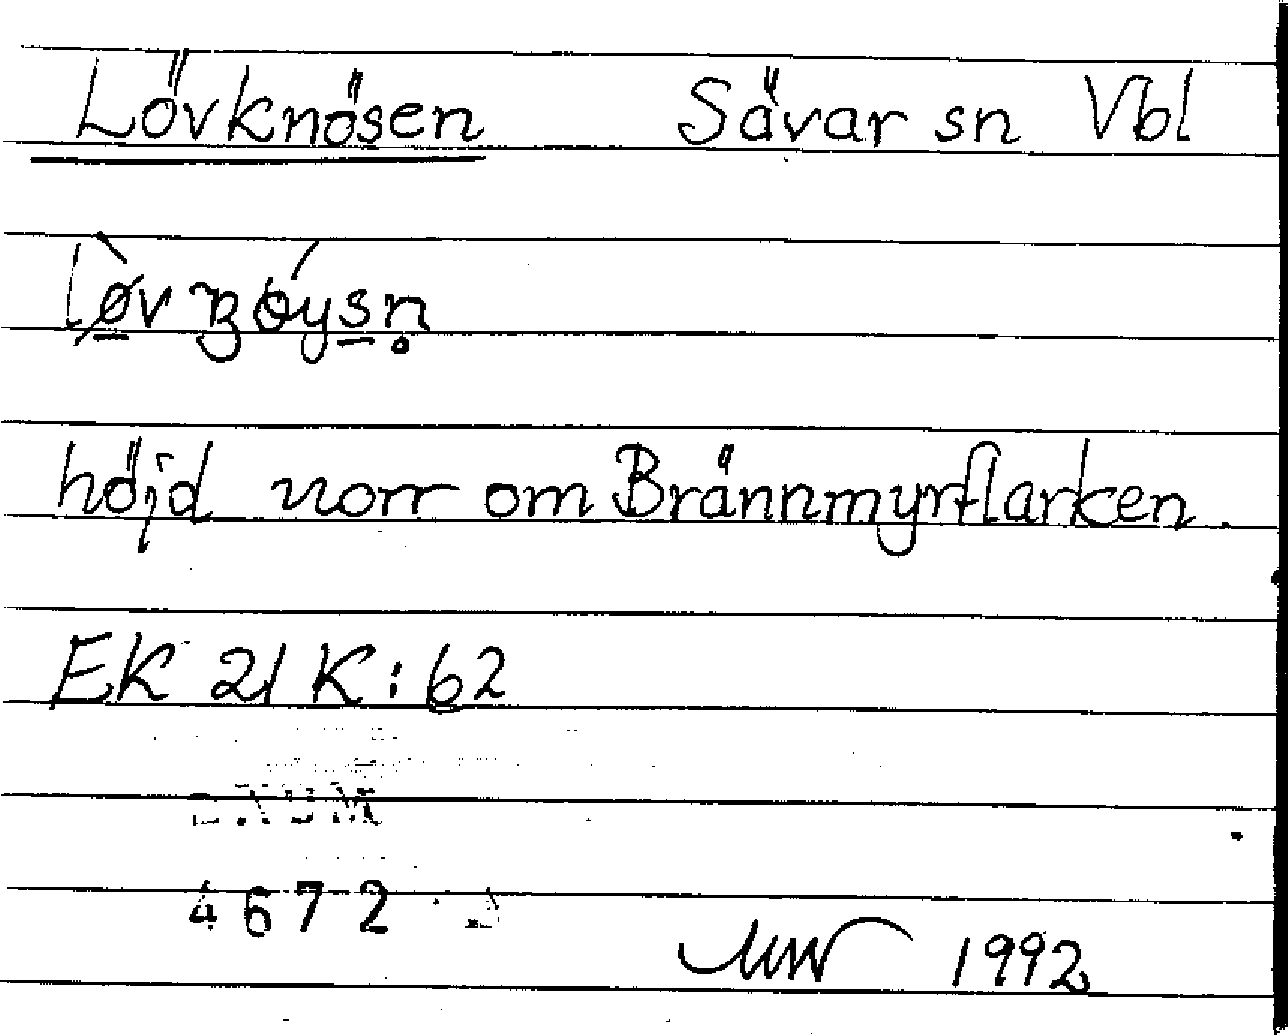 Lövknösen Sävar sn Vbl
höjd norr om Brännmyrflarken.
EK 21 K:62
4672
1992